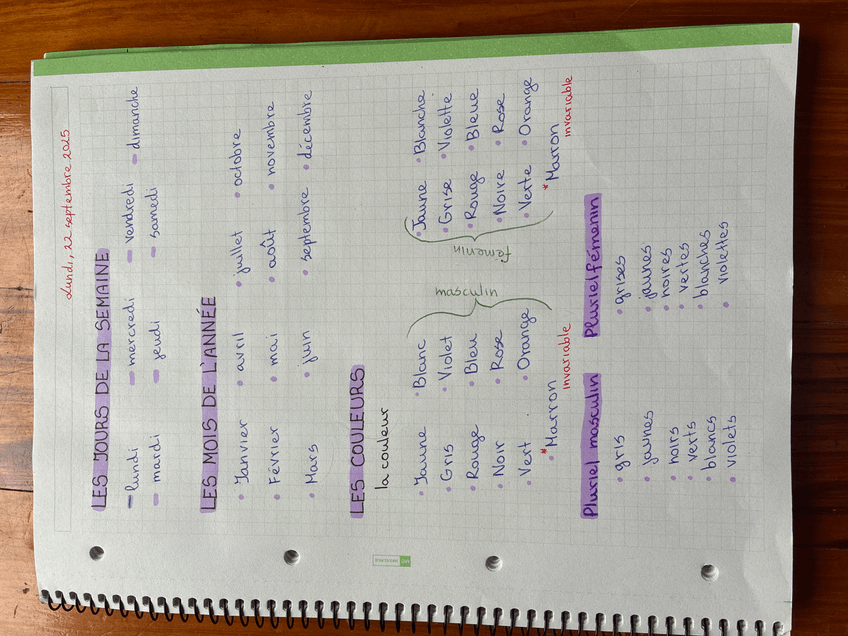 Lundi, 22 septembre 2025
LES JOURS DE LA SEMAINE
lundi mercredi vendredi dimanche
mardi jeudi samedi
LES MOIS DE L'ANNÉE
Janvier avril juillet octobre
Février mai août novembre
Mars juin septembre décembre
LES COULEURS
la couleur
masculin femenin
Jaune Blanc Jaune Blanche
Gris Violet Grise Violette
Rouge Bleu Rouge Bleue
Noir Rose Noire Rose
Vert Orange Verte Orange
*Marron *Marron
invariable invariable
Pluriel masculin Pluriel fémenin
gris grises
jaunes jaunes
noirs noires
verts vertes
blancs blanches
violets violettes